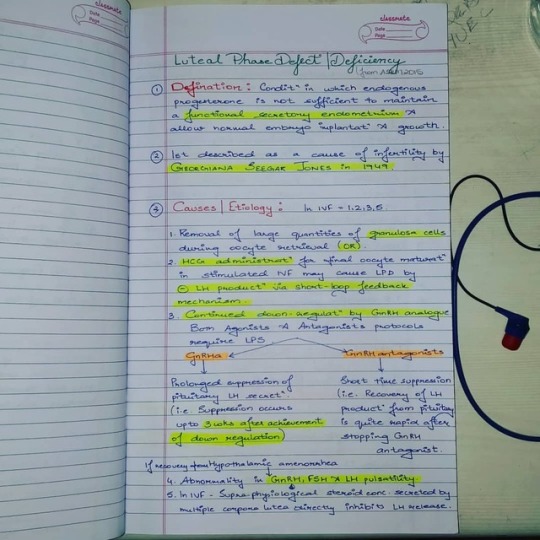 classmate
Date
Page
classmate
Date
Page
Luteal Phase Defect | Deficiency
(from ASRM 2015
① Defination: Conditⁿ in which endogenous
progesterone is not sufficient to maintain
a functional secretory endometrium &
allow normal embryo implantatⁿ & growth.
② 1st described as a cause of infertility by
GEORGIANA SEEGAR JONES in 1949.
③ Causes | Etiology: In IVF - 1,2,3,5.
1. Removal of large quantities of granulosa cells
during oocyte retrieval (OR).
2. HCG administratⁿ for final oocyte maturatⁿ
in stimulated IVF may cause LPD by
⊖ LH productⁿ via short-loop feedback
mechanism.
3. Continued down-regulatⁿ by GnRH analogue
Both Agonists & Antagonists protocols
require LPS
GnRHa GnRH antagonists
Prolonged suppression of
pituitary LH secretⁿ
(i.e. Suppression occurs
upto 3 wks after achievement
of down regulation)
Short time suppression
(i.e. Recovery of LH
productⁿ from pituitary
is quite rapid after
stopping GnRH
antagonist.
If recovery from Hypothalamic amenorrhea
4. Abnormality in GnRH, FSH & LH pulsatility.
5. In IVF - Supra-physiological steroid conc. secreted by
multiple corpora lutea directly inhibits LH release.